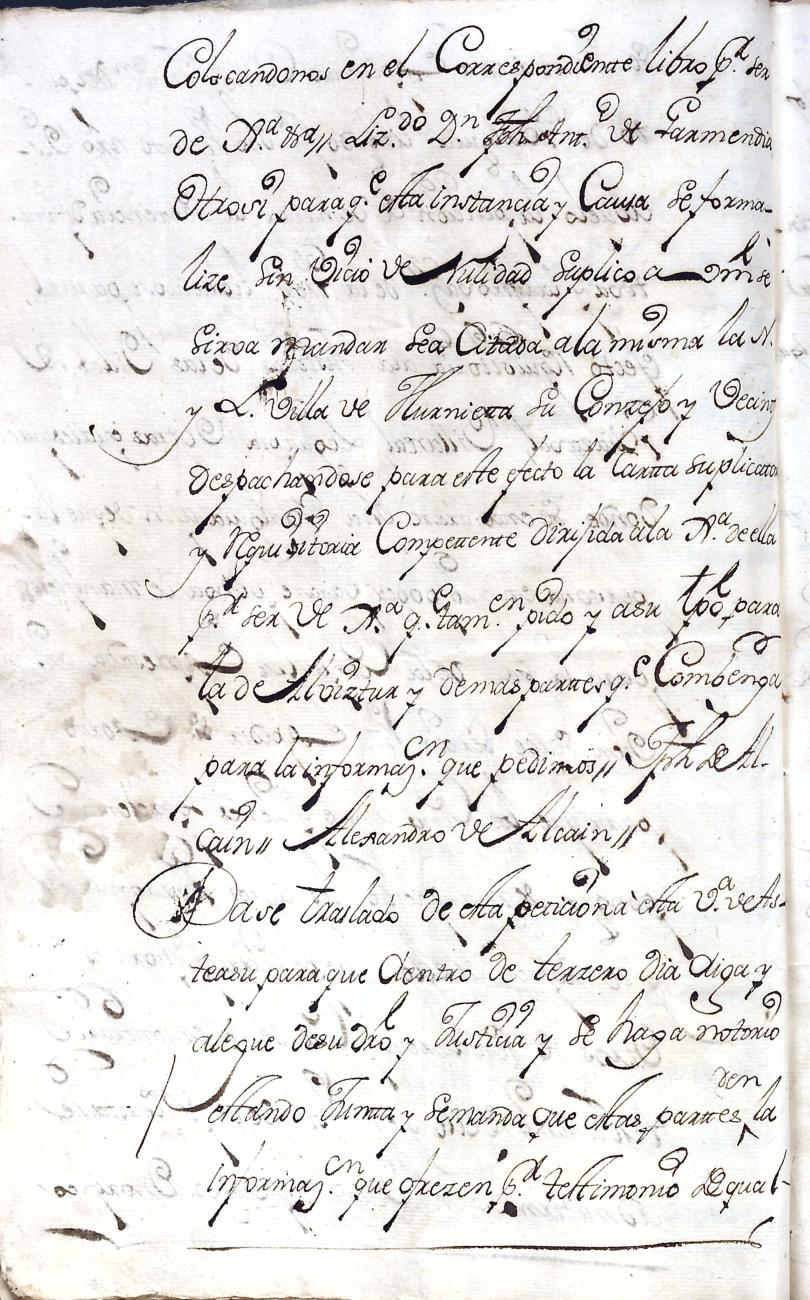 Colocandonos en el Correspondiente libro p.ª ser
de N.ª &ª// Liz.do D.n Jph Ant.º de Garmendia
Otrosi para q.e esta instancia y Causa se forma-
lize sin Vicio de Nulidad suplico a Vm se
sirva mandar sea Citada a la misma la N.
y L. Villa de Hurnieta su Conzejo y Vecinos
despachandose para este efecto la Cartta suplicator
y Requisitoria Competente dirijida ala N.ª de ella
p.ª ser de N.ª q.e tam.en pido y a su tpo para
la de Alviztur y demas parttes q.e Combenga
para la informaz.on que pedimos// Jph de Al-
cain// Alexandro de Alcain//
Dase traslado de esta peticion a esta V.ª de As-
teasu para que dentro de terzero dia diga y
alegue desu dro y Justicia y se haga notorio
estando Juntta y se manda que estas parttes den la
informaz.on que ofrezen p.ª testimonio del qual